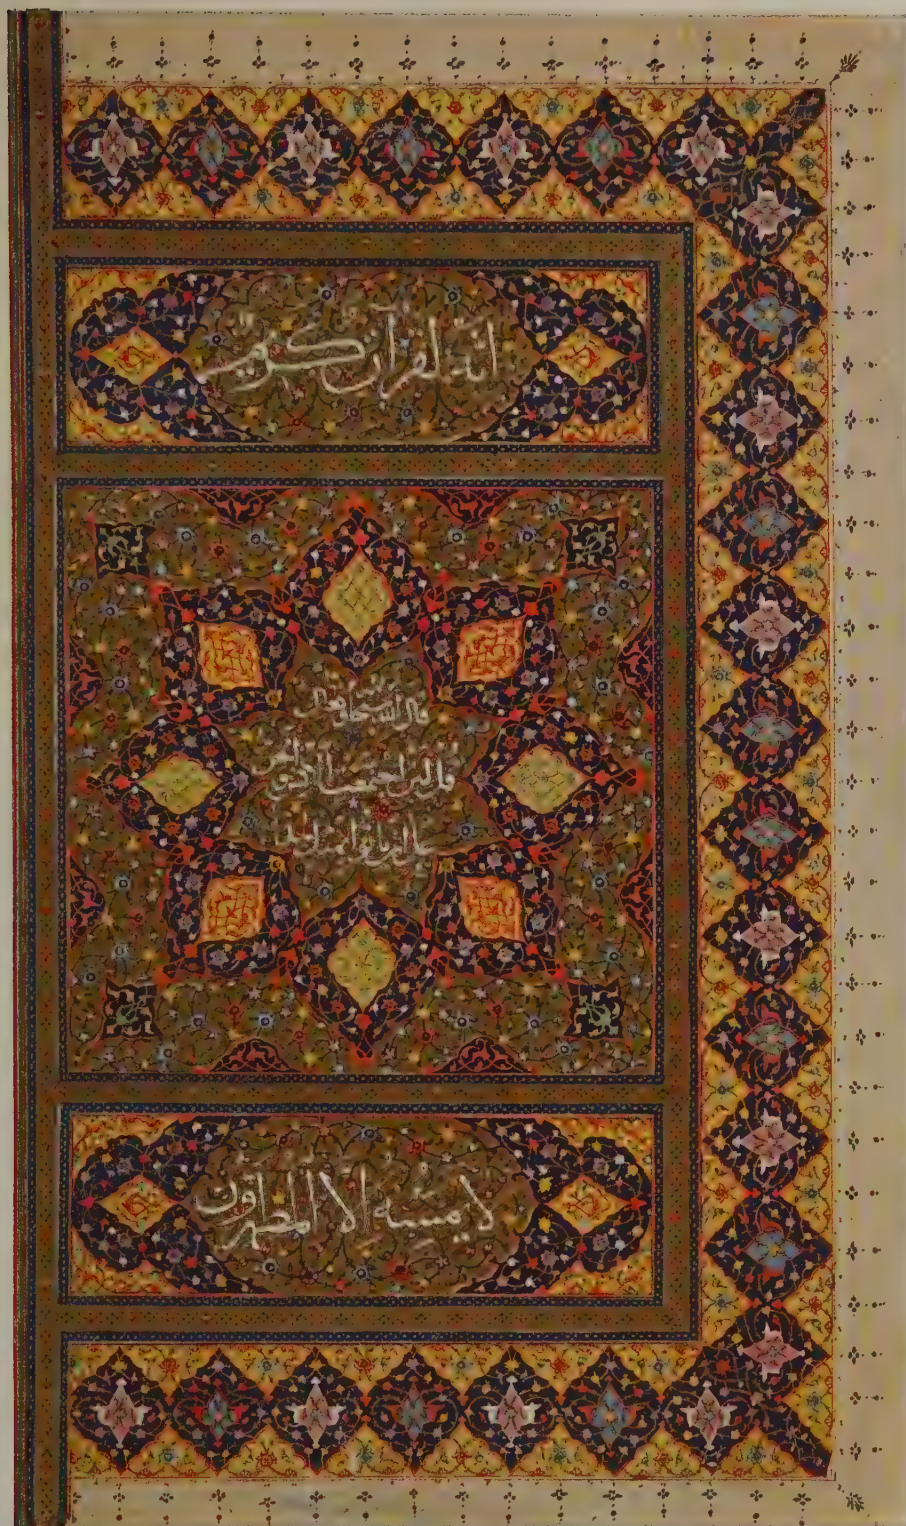 انه لقرآن كريم
قال الله سبحانه وتعالى
قل لئن اجتمعت الانس والجن
لا يمسه الا المطهرون